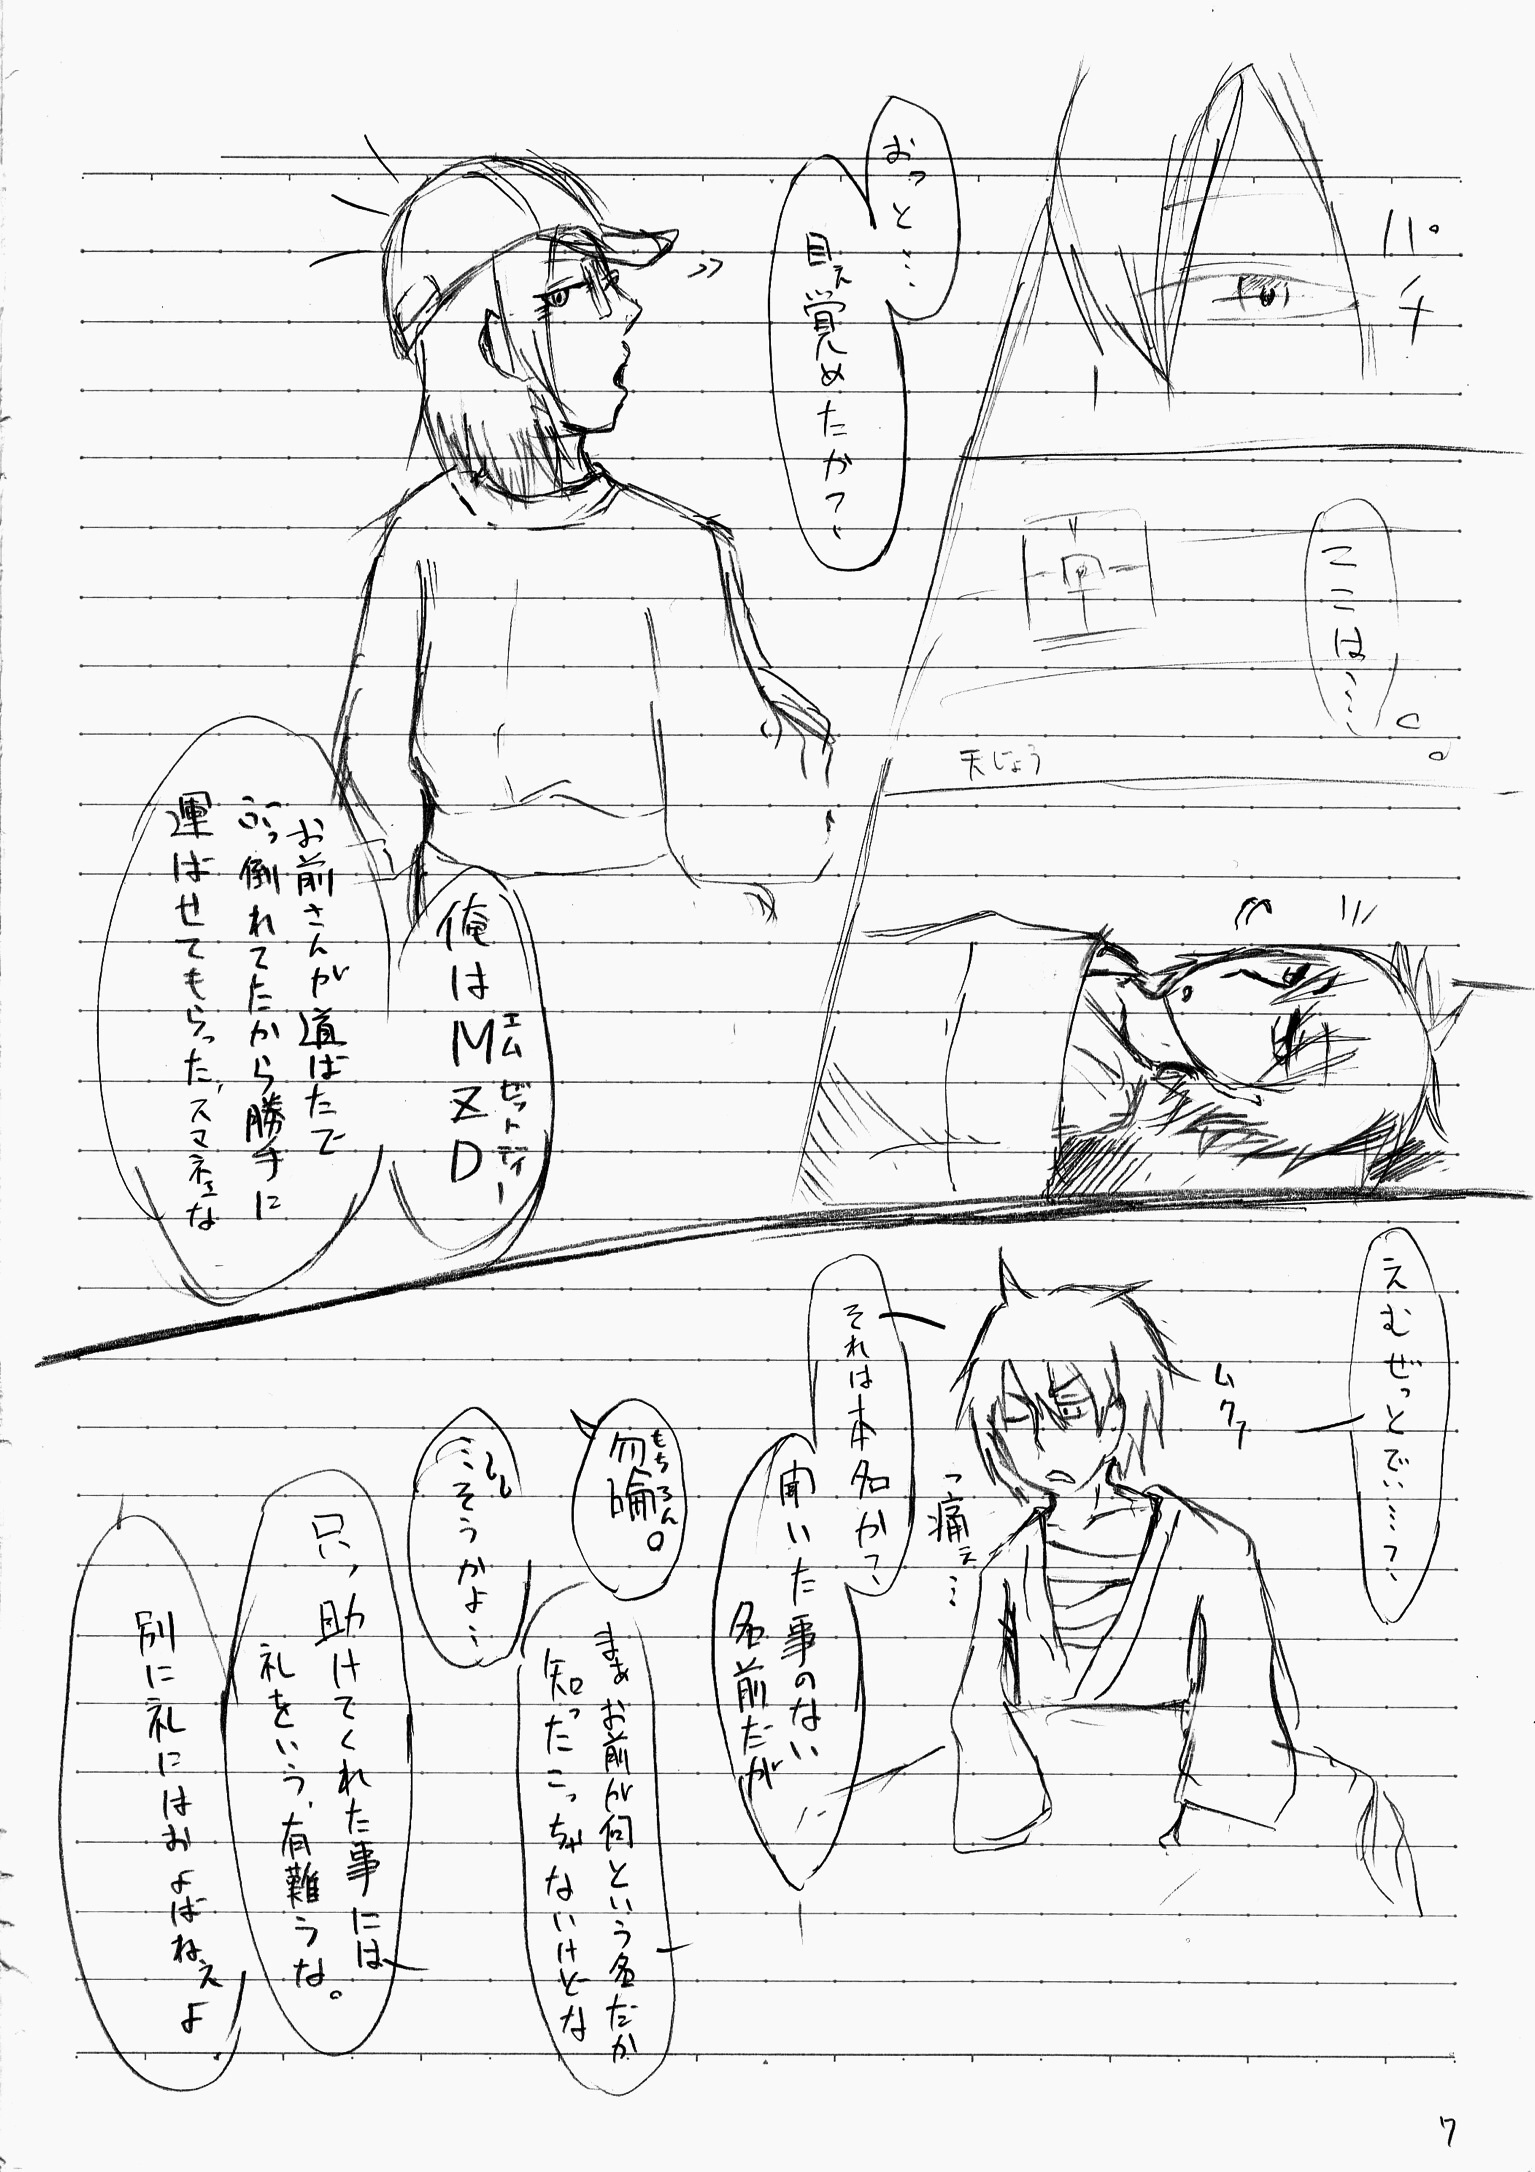 パチ
ここは……
天じょう
おっと…
目ぇ覚めたかて、
俺はMZD
エムゼットディー
お前さんが道ばたで
ぶっ倒れてたから勝手に
運ばせてもらった、スマネェな
えむぜっとでぃ……て、
ムクッ
っ痛ぇ…
それは本名かて、
聞いた事のない
名前だが
もちろん。
まぁお前が何という名だか
知ったこっちゃないけどな
…そうかよ…
只、助けてくれた事には
礼をいう、有難うな。
別に礼にはおよばねぇよ
7